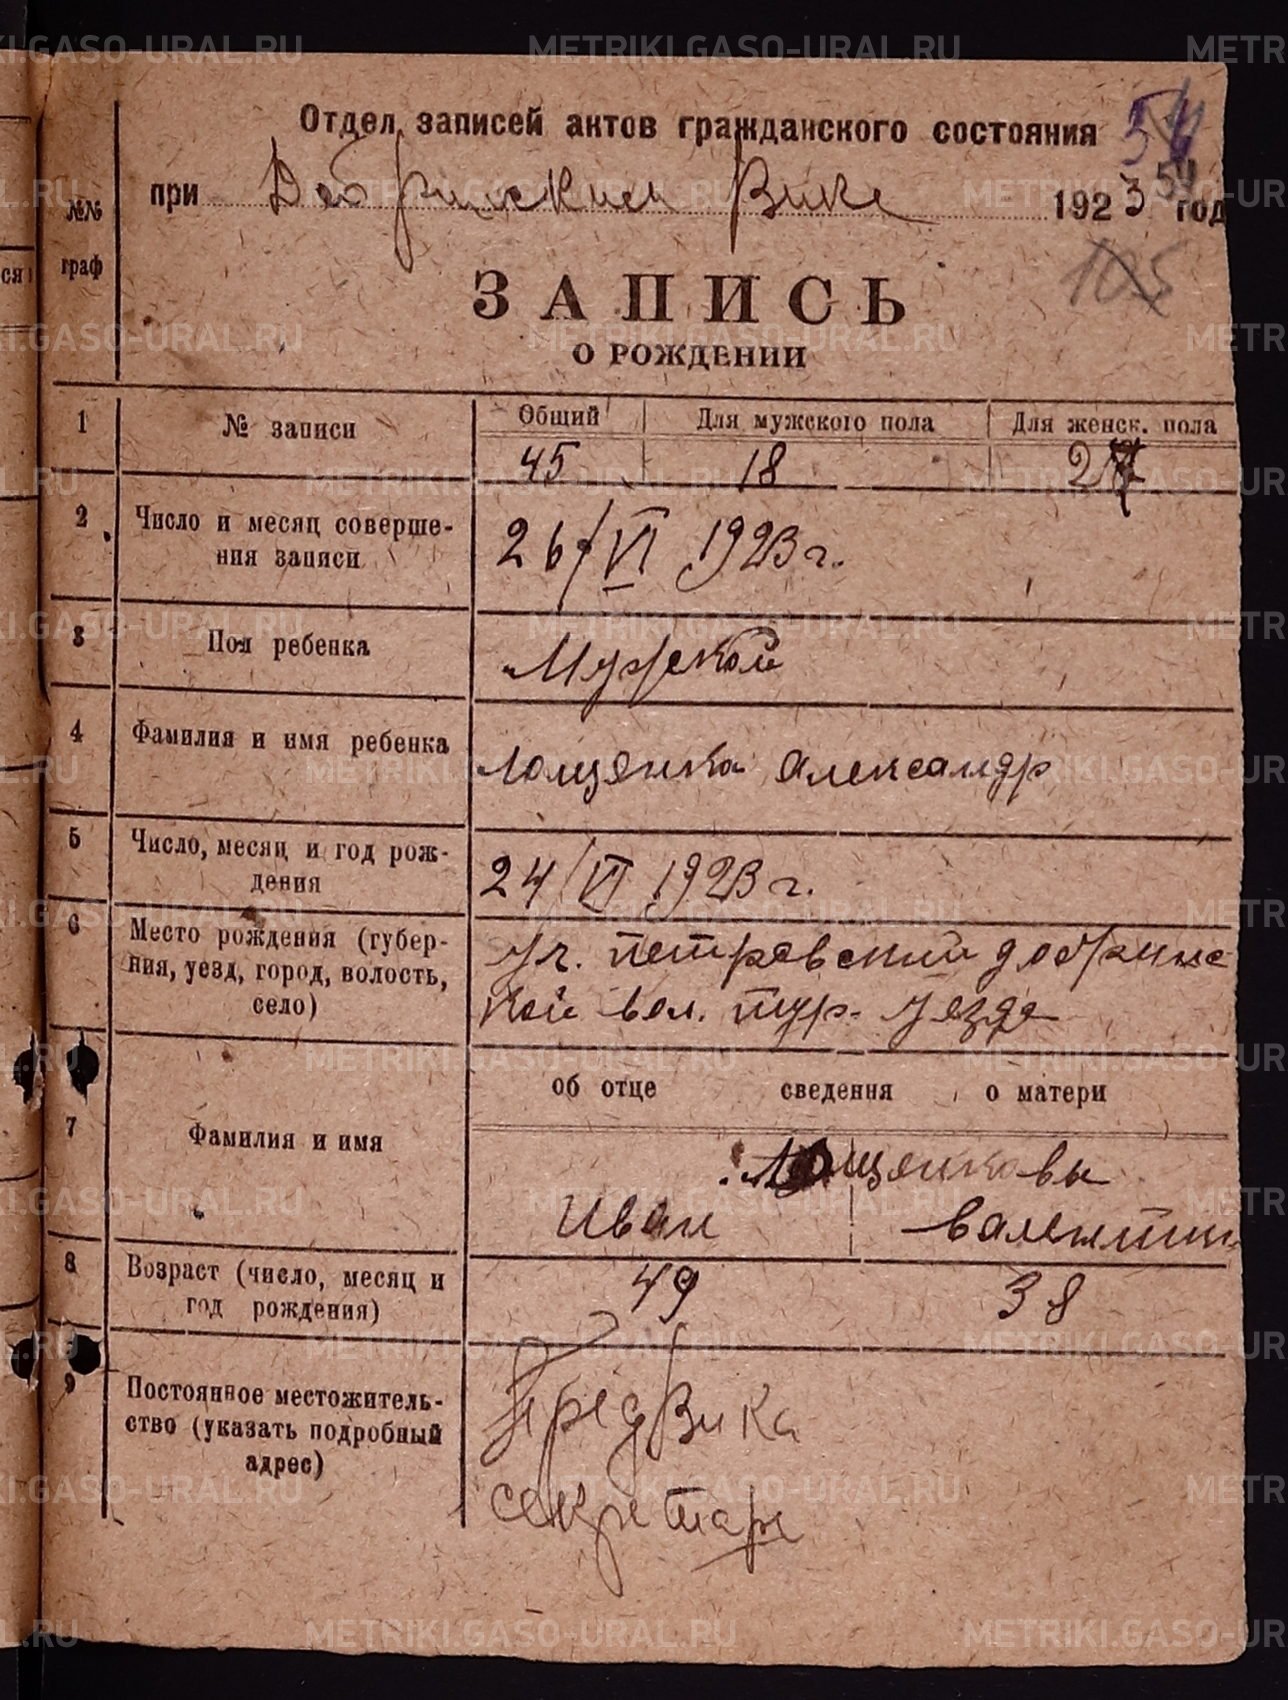 Отдел записей актов гражданского состояния 54
при Добринским Вике 1923 год 54
№№ граф
105
ЗАПИСЬ
О РОЖДЕНИИ
1 № записи Общий Для мужского пола Для женск. пола
45 18 27
2 Число и месяц соверше-
ния записи 26/VI 1923 г.
3 Пол ребенка Мужской
4 Фамилия и имя ребенка Лощенко Александр
5 Число, месяц и год рож-
дения 24/VI 1923 г.
6 Место рождения (губер-
ния, уезд, город, волость,
село) уч. петровский добринс
кой вол. тур. уезде
об отце сведения о матери
7 Фамилия и имя Лощенковы
Иван Валентин
8 Возраст (число, месяц и
год рождения) 49 38
9 Постоянное местожитель-
ство (указать подробный
адрес)
Предвика
секретарь
METRIKI.GASO-URAL.RU